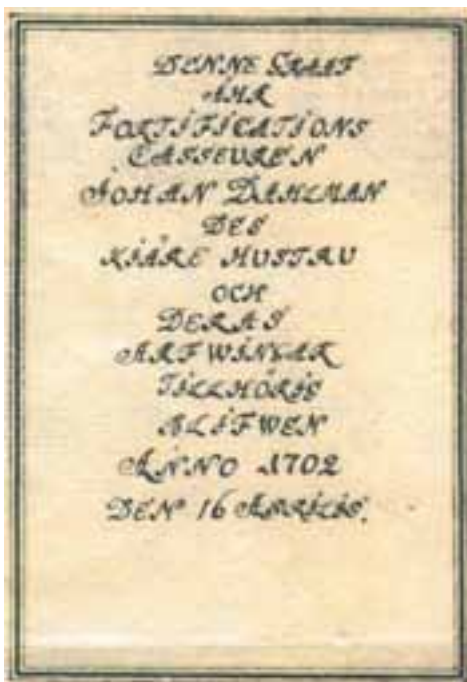 DENNE GRAAF
AHR
FORTIFICATIONS
CASSEUREN
JOHAN DAHLMAN
DES
KIÄRE HUSTRU
OCH
DERAS
ARFWINGAR
TILLHÖRIG
BLIFWEN
ANNO 1702
DEN 16 APRILIS.